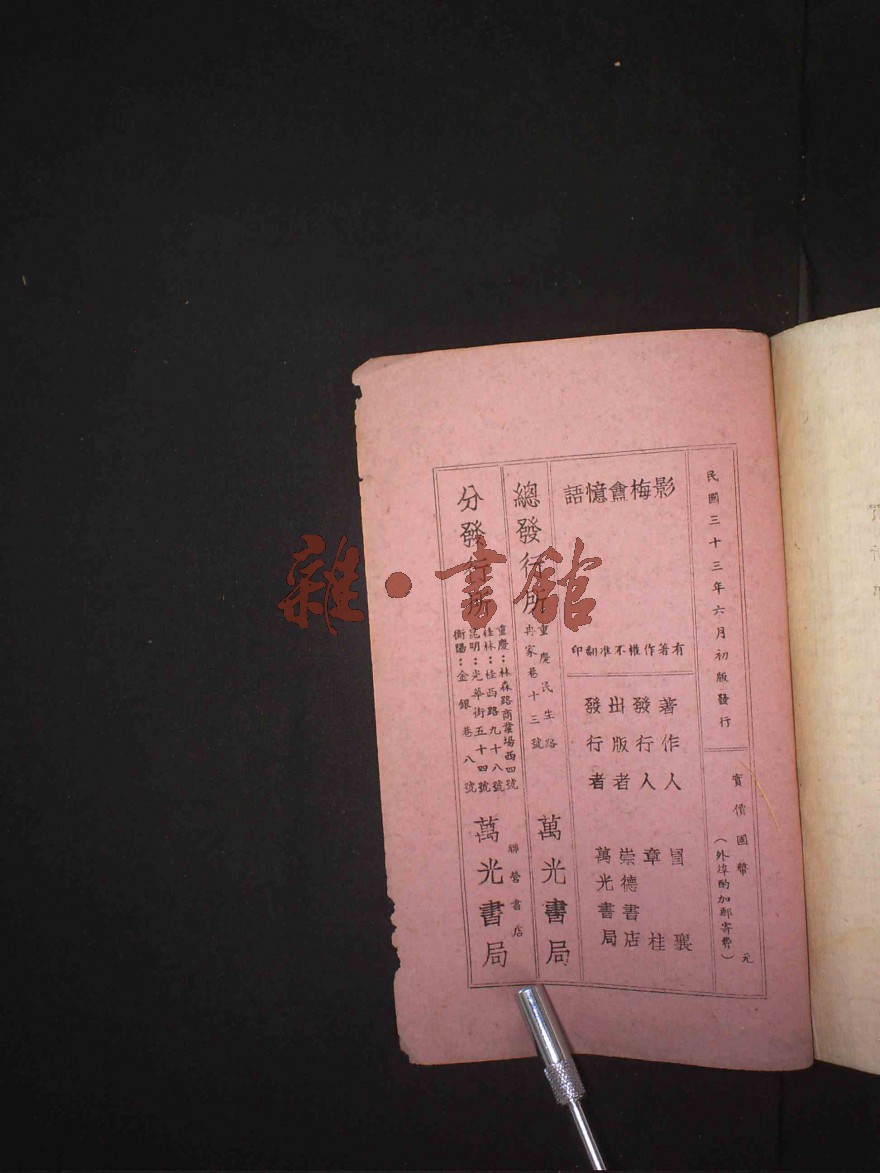 民國三十三年六月初版發行
實價國幣　元
（外埠酌加郵寄費）
影梅盦憶語
有著作權不准翻印
著作人　冒襄
發行人　章桂
出版者　崇德書店
發行者　萬光書局
總發行所
重慶民生路
冉家巷十三號
萬光書局
分發行所
重慶：林森路商業場西四號
桂林：桂西路九十八號
昆明：光華街五十四號
衡陽：金銀巷八號
聯營書店
萬光書局
雜·書館